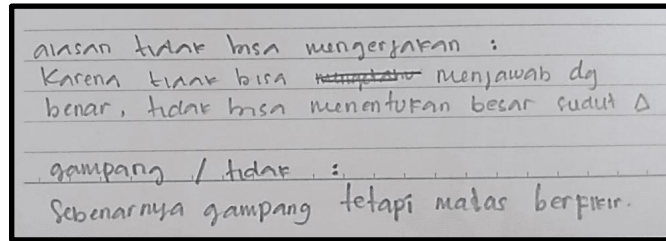 alasan tidak bisa mengerjakan :
Karena tidak bisa menjawab dg
benar, tidak bisa menentukan besar sudut Δ
gampang / tidak :
Sebenarnya gampang tetapi malas berfikir.